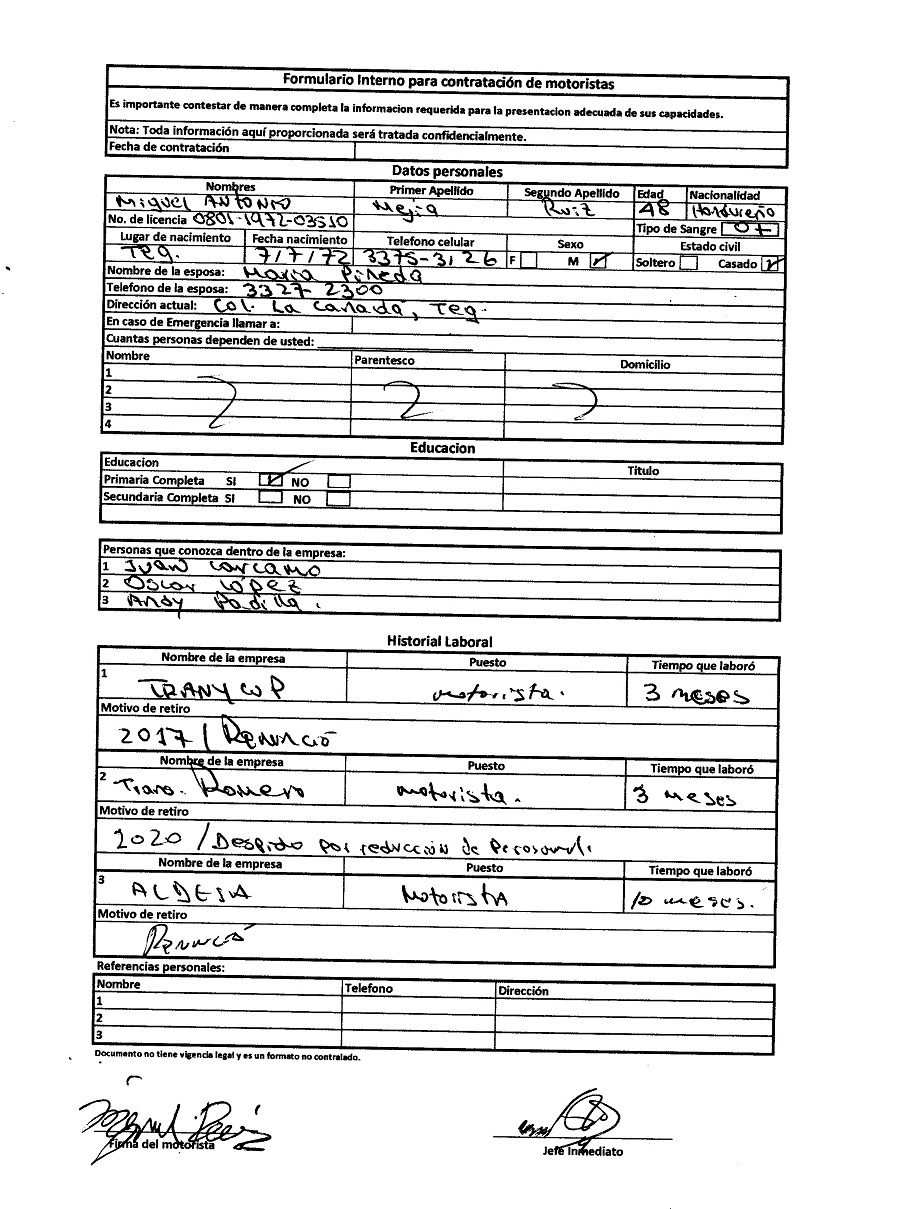 Formulario Interno para contratación de motoristas
Es importante contestar de manera completa la informacion requerida para la presentacion adecuada de sus capacidades.
Nota: Toda información aquí proporcionada será tratada confidencialmente.
Fecha de contratación
Datos personales
Nombres Primer Apellido Segundo Apellido Edad Nacionalidad
Miguel Antonio Mejia Ruiz 48 Hondureño
No. de licencia 0801-1972-03510 Tipo de Sangre O+
Lugar de nacimiento Fecha nacimiento Telefono celular Sexo Estado civil
Teg. 7/7/72 3375-3126 F M ✓ Soltero Casado ✓
Nombre de la esposa: Maria Pineda
Telefono de la esposa: 3327-2300
Dirección actual: Col. La Cañada, Teg.
En caso de Emergencia llamar a:
Cuantas personas dependen de usted:
Nombre Parentesco Domicilio
1
2
3
4
Educacion
Educacion Titulo
Primaria Completa SI ✓ NO
Secundaria Completa SI NO
Personas que conozca dentro de la empresa:
1 Juan Carcamo
2 Oscar López
3 Andy Padilla.
Historial Laboral
Nombre de la empresa Puesto Tiempo que laboró
1 motorista. 3 meses
Motivo de retiro
2017 / Renunció
Nombre de la empresa Puesto Tiempo que laboró
2 Trans. Romero motorista. 3 meses
Motivo de retiro
2020 / Despido por reducción de Personal.
Nombre de la empresa Puesto Tiempo que laboró
3 ALDESA Motorista 10 meses.
Motivo de retiro
Renunció
Referencias personales:
Nombre Telefono Dirección
1
2
3
Documento no tiene vigencia legal y es un formato no controlado.
Firma del motorista Jefe Inmediato